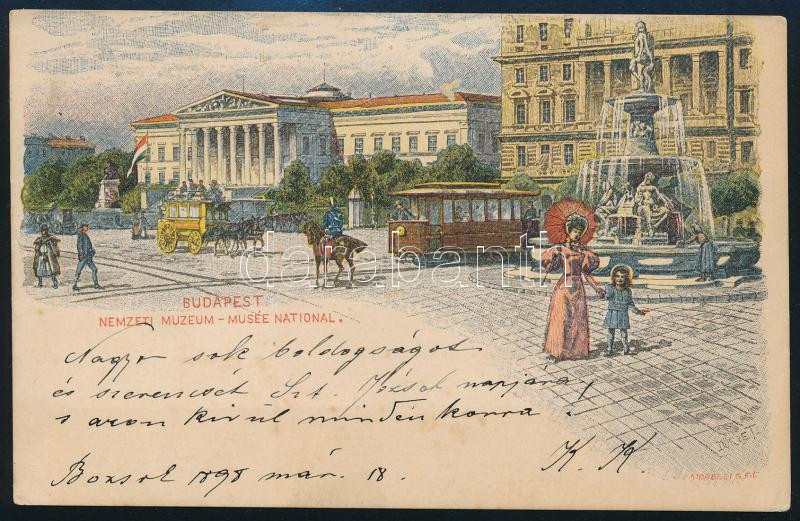 darabanth
BUDAPEST
NEMZETI MUZEUM – MUSÉE NATIONAL.
Nagyon sok boldogságot
és szerencsét Szt. József napjára!
s azon kivül minden korra!
K. K.
1898 már. 18.
MORELLI G. F.I.